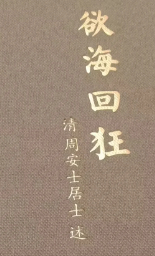 欲海回狂
清周安士居士述